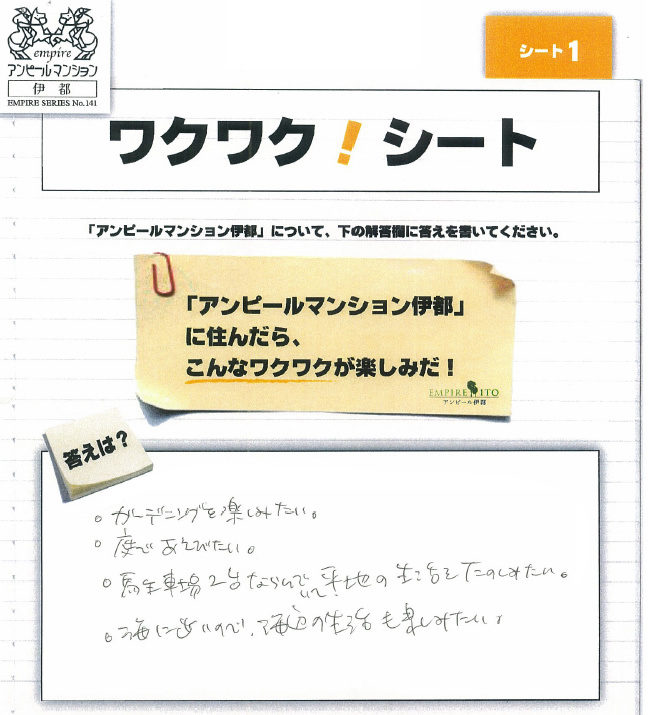 empire
アンピールマンション
伊都
EMPIRE SERIES No.141
シート1
ワクワク!シート
「アンピールマンション伊都」について、下の解答欄に答えを書いてください。
「アンピールマンション伊都」
に住んだら、
こんなワクワクが楽しみだ!
EMPIRE ITO
アンピール伊都
答えは?
。ガーデニングを楽しみたい。
。庭であそびたい。
。駐車場2台ならんでいて、平地の生活をたのしみたい。
。海に近いので、海辺の生活も楽しみたい。